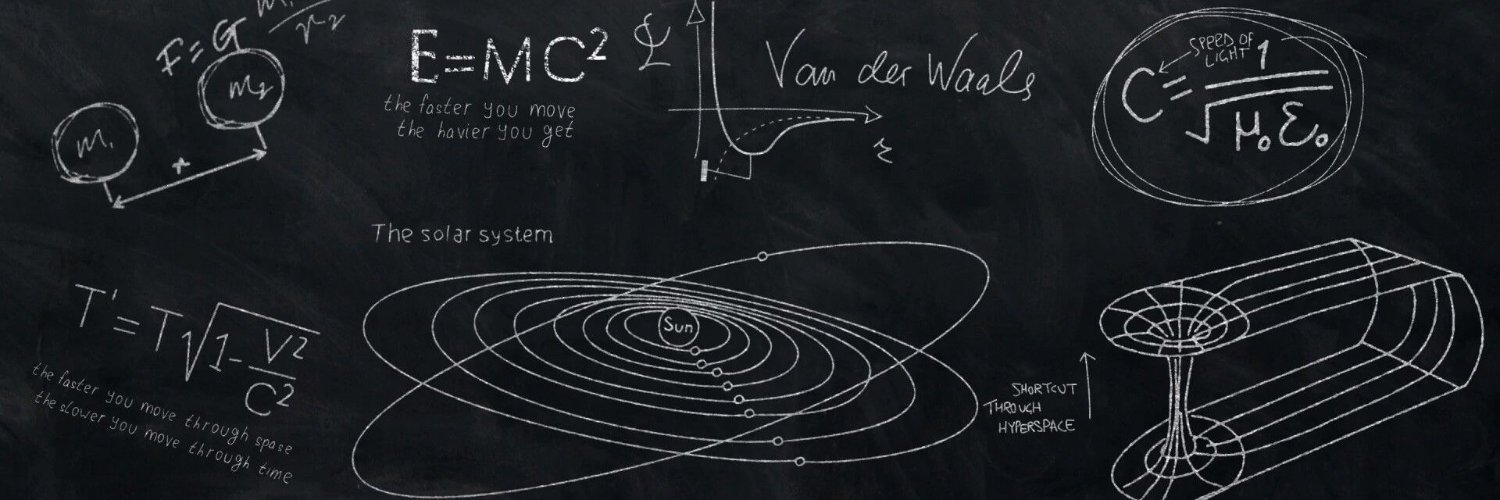 F=G m₁/r²
m₁
m₂
r
E=MC²
the faster you move
the havier you get
Van der Waals
r
SPEED OF
LIGHT
C=1/√μ₀ε₀
The solar system
Sun
T'=T√1-V²/C²
the faster you move through spase
the slower you move through time
SHORTCUT
THROUGH
HYPERSPACE